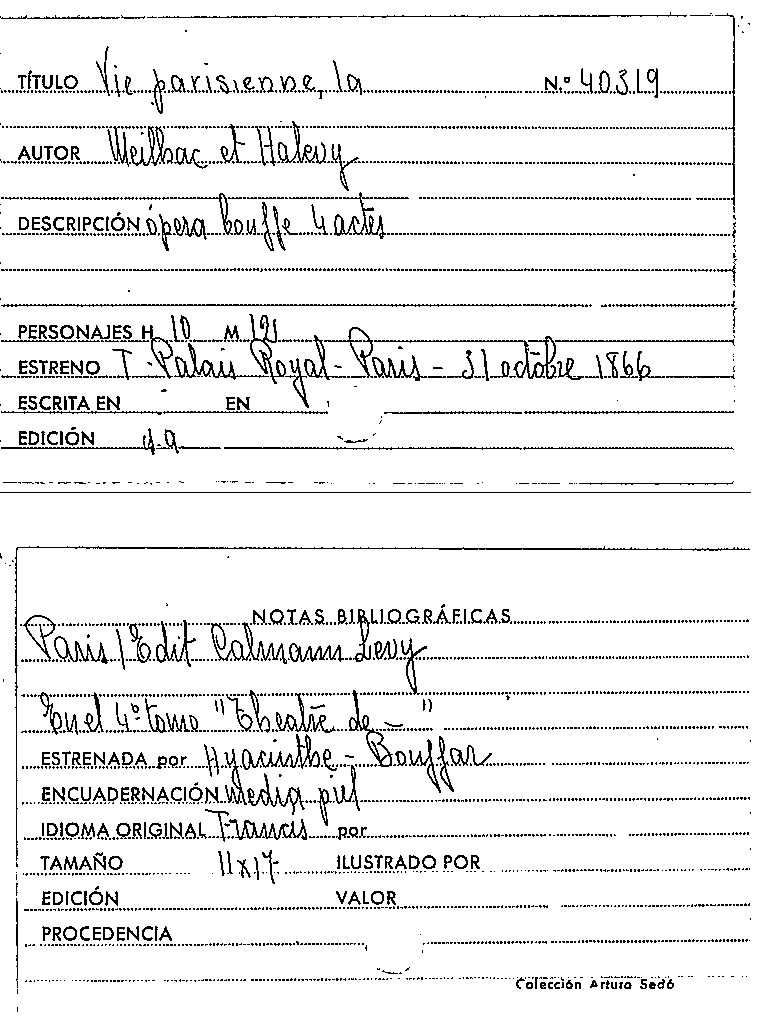 TÍTULO Vie parisienne, la N.º 40319
AUTOR Meilhac et Halevy
DESCRIPCIÓN ópera bouffe 4 actes
PERSONAJES H 10 M 12
ESTRENO T. Palais Royal - Paris - 31 octobre 1866
ESCRITA EN EN
EDICIÓN s.a.
NOTAS BIBLIOGRÁFICAS
Paris / Edit Calmann Levy
En el 4º tomo "Theatre de - "
ESTRENADA por Hyacinthe - Bouffar
ENCUADERNACIÓN media piel
IDIOMA ORIGINAL Francés por
TAMAÑO 11x17 ILUSTRADO POR
EDICIÓN VALOR
PROCEDENCIA
Colección Arturo Sedó